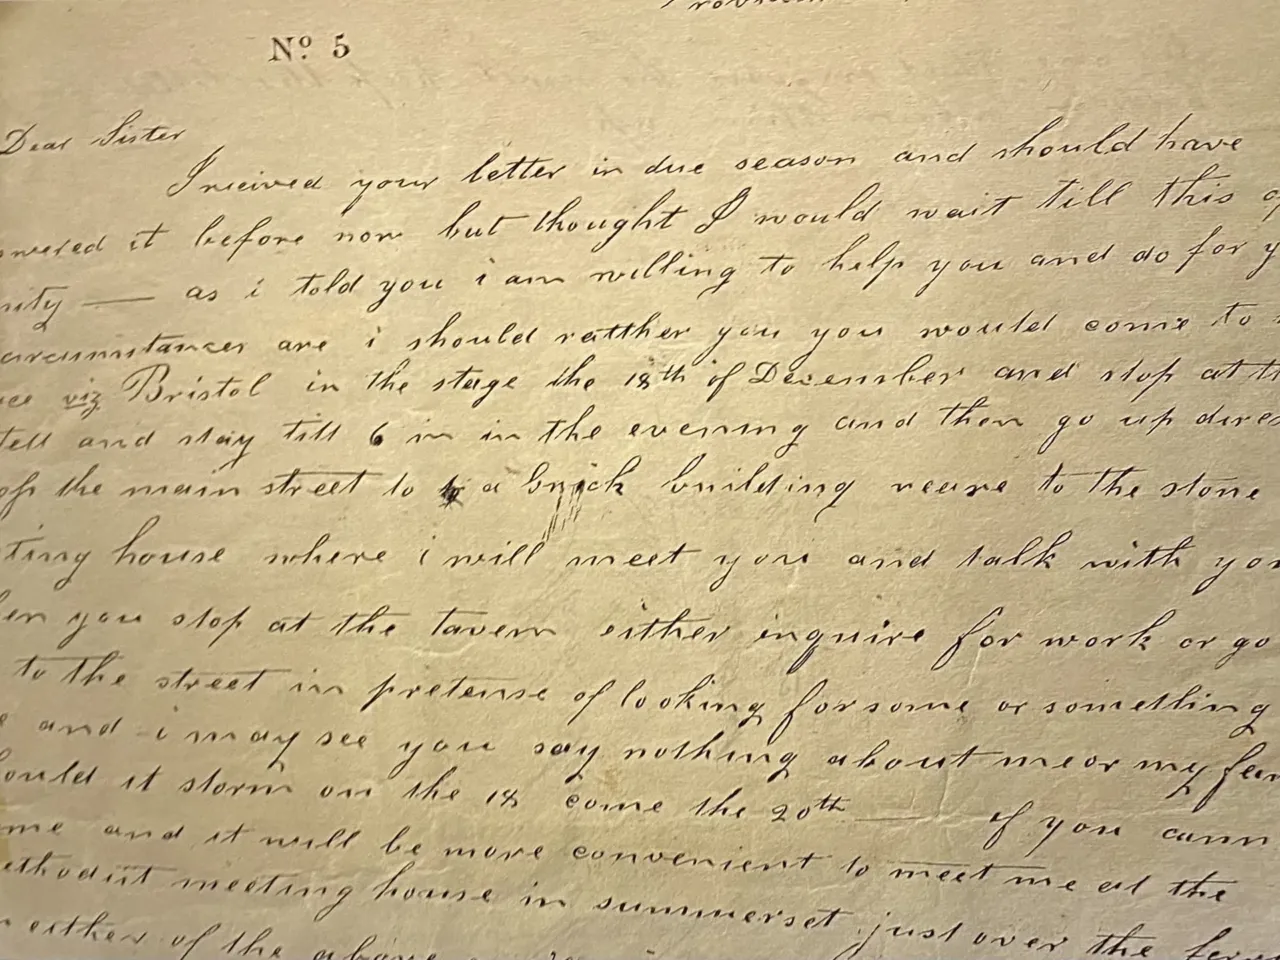 Nº 5
Dear Sister
I received your letter in due season and should have
it before now but thought I would wait till this
— as i told you i am willing to help you and do for
are i should ratther you you would come to
viz Bristol in the stage the 18th of December and stop at
and stay till 6 in in the evening and then go up
of the main street to a brick building neare to the stone
ting house where i will meet you and talk with you
you stop at the tavern either inquire for work or go
to the street in pretense of looking for some or something
and i may see you say nothing about me or my
ould it storm on the 18 come the 20th — if you cann
me and it will be more convenient to meet me at the
ethodist meeting house in summerset just over the
either of the above